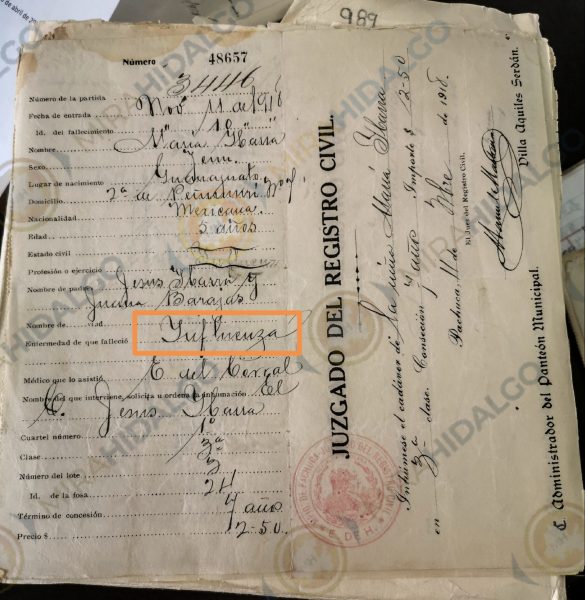 de abril de 20
989
Número 48657
Número de la partida 3446
Fecha de entrada Nov. 11 de 1918
Id. del fallecimiento " 10 " "
Nombre María Ibarra
Sexo Fem.
Lugar de nacimiento Guanajuato
Domicilio 2ª de
Nacionalidad Mexicana
Edad 5 años
Estado civil
Profesión o ejercicio
Nombre de padres Jesus Ibarra y
Juana Barajas
Nombre de
Enfermedad de que falleció Influenza
Médico que lo asistió E. del Corral
Nombre del que interviene, solicita u ordena la inhumación El
C. Jesus Ibarra
Cuartel número 1º
Clase 3ª
Número del lote 3
Id. de la fosa 24
Término de concesión 7 año
Precio $ 2-50
JUZGADO DEL REGISTRO CIVIL.
Inhúmese el cadáver de la niña María Ibarra
en 3ª clase. Concesión 7 años Importe $ 2-50
Pachuca, 11 de 9bre de 1918.
El Juez del Registro Civil,
Villa Aquiles Serdán.
C. Administrador del Panteón Municipal.
MIRA HIDALGO